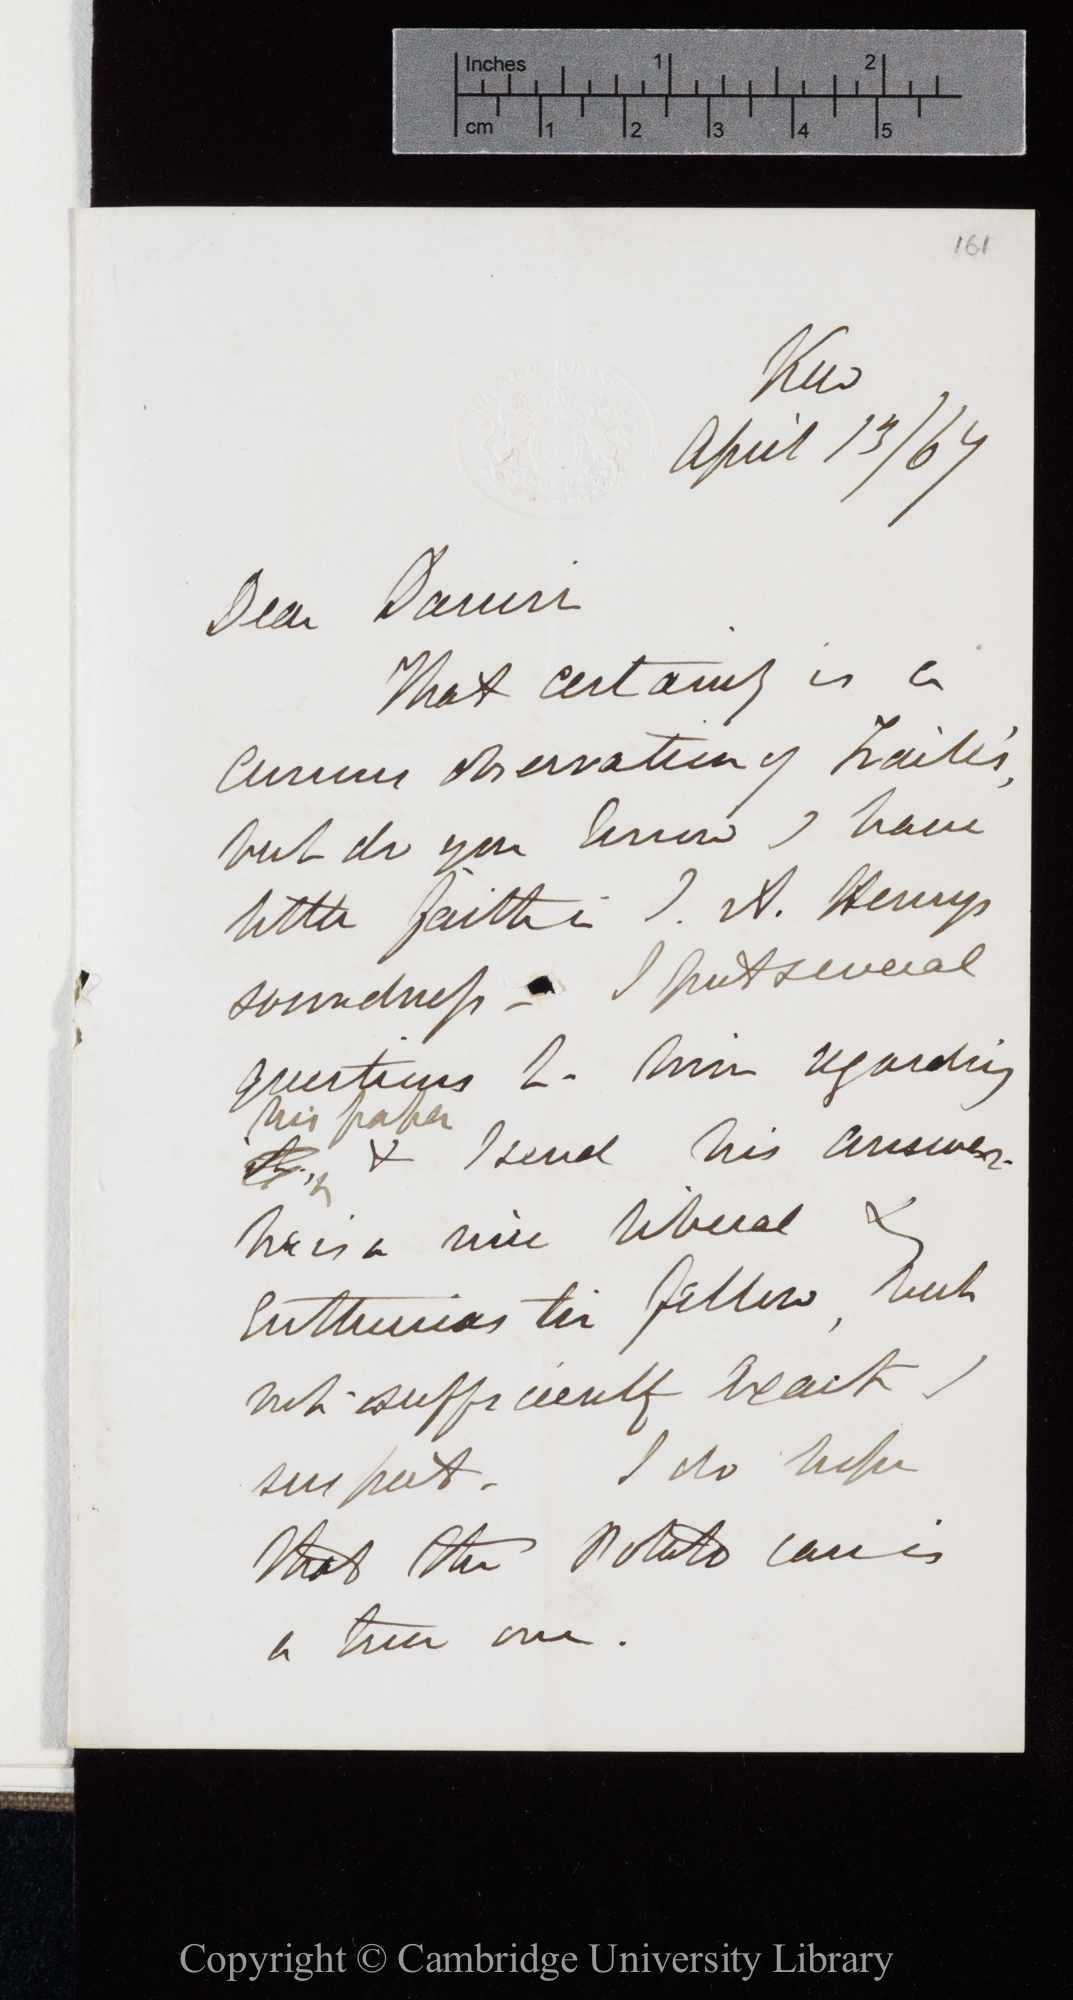 Inches 1 2
cm 1 2 3 4 5
161
Kew
April 13/67
Dear Darwin
That certainly is a
curious observation of Trail's,
but do you know I have
little faith in I. A. Henrys
soundness – I put several
questions to him regarding
his paper
& I send his answer –
he is a nice liberal &
enthusiastic fellow, but
not sufficiently exact I
suspect – I do hope
that the Potato case is
a true one.
Copyright © Cambridge University Library